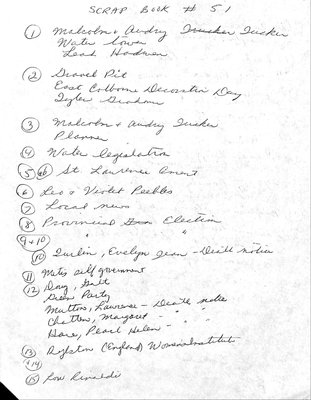 SCRAP BOOK # 51
① Malcolm & Audry Tucker
Water Tower
Leah
② Gravel Pit
East Colborne Decoration Day
Tyler
③ Malcolm & Audry Tucker
Planner
④ Water legislation
⑤ 6b St. Lawrence
⑥ Leo & Violet Peebles
⑦ Local news
⑧ Provincial Election
9+10 "
⑩ Evelyn Jean - Death notice
⑪ Metis self government
⑫ Day,
Green Party
Mutton, Lawrence - Death notice
Chatten, Margaret - " "
Hare, Pearl Helen - " "
⑬ Rylston (England) Womens Institute
+14
⑮ Lou Rinaldi